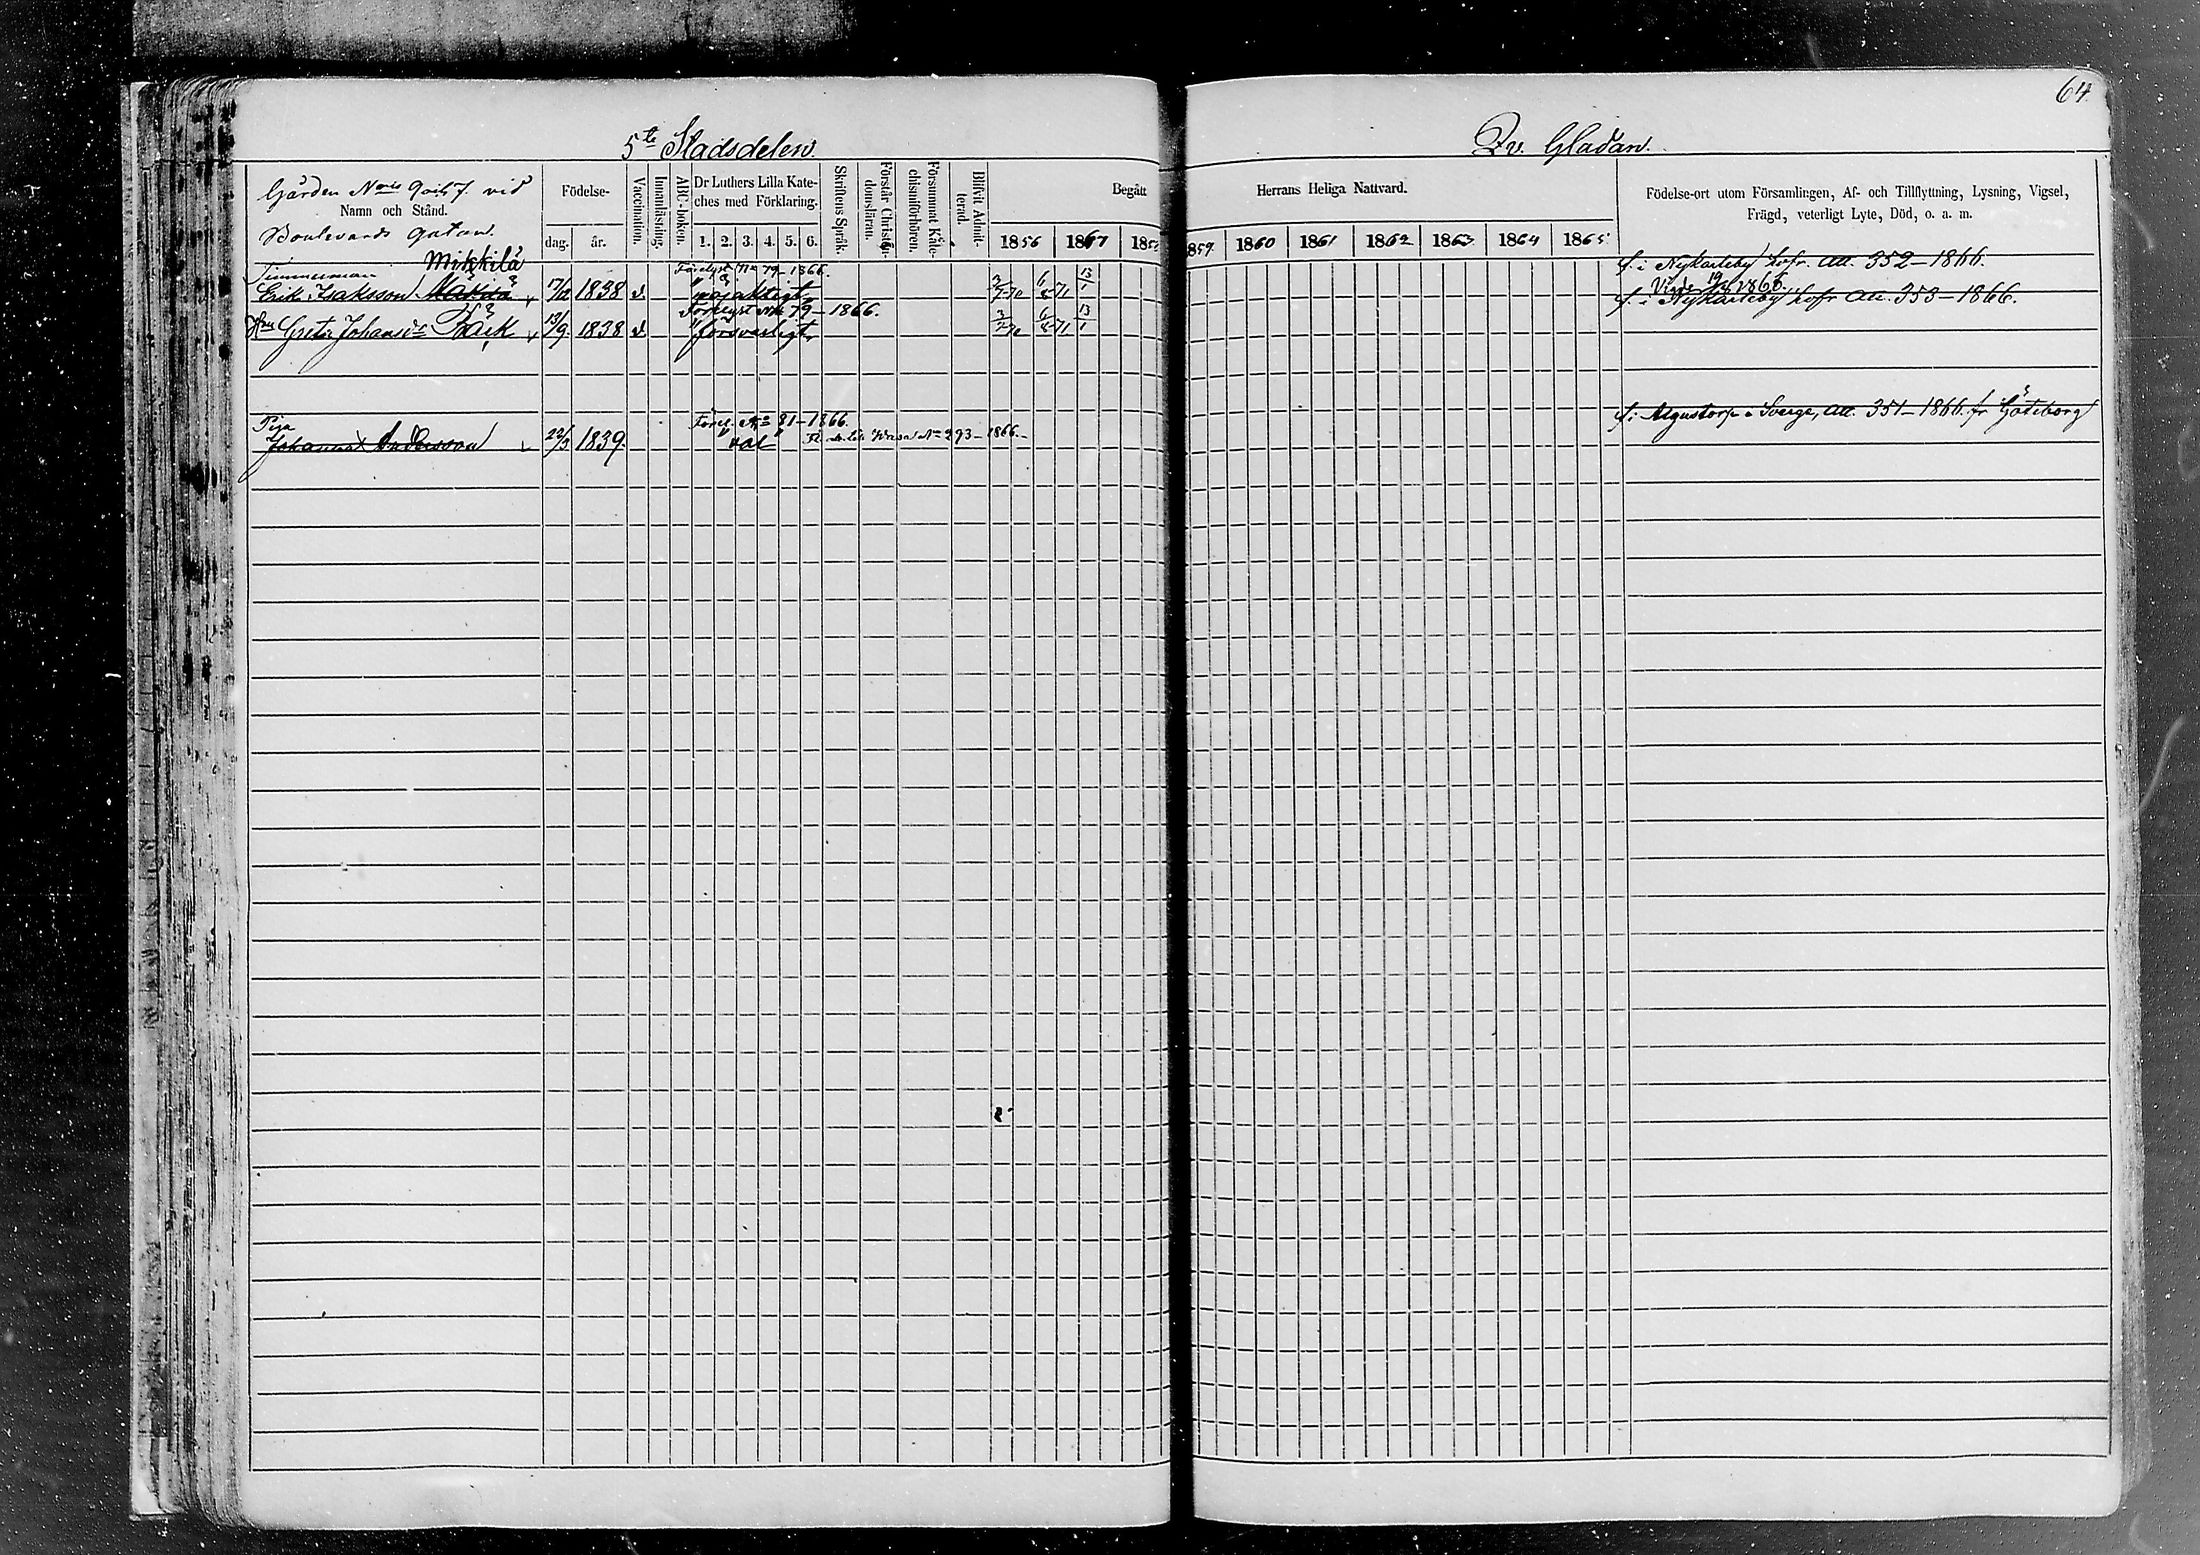 64
5te Stadsdelen.
Qv. Gladan.
Gården Nris 9 och 7. vid
Namn och Stånd.
Boulevards gatan.
Födelse-
dag. år.
Vaccination.
Innanläsning.
ABC-boken.
Dr Luthers Lilla Kate-
ches med Förklaring.
1. 2. 3. 4. 5. 6.
Skriftens Språk.
Förstår Christen-
domsläran.
Försummat Kate-
chismiförhören.
Blifvit Admit-
terad.
Begått
Herrans Heliga Nattvard.
1856 1867 185
1859. 1860 1861 1862 1863 1864 1865
Födelse-ort utom Församlingen, Af- och Tillflyttning, Lysning, Vigsel,
Frägd, veterligt Lyte, Död, o. a. m.
Timmerman Mikkilä
Förelyst No 79-1866. f. i Nykarleby hofr. att. 352-1866.
Erik Isaksson 17/12 1838 v. nöjaktigt 3/7-70 6/8-71 13/1 Vigde 19/8 1866.
Förelyst No 79-1866. f. i Nykarleby hofr att. 353-1866.
Hru Greta Johansdr Bäck 13/9 1838 v försvarligt 3/7-70 6/8-71 13/1
Piga Förel. No 81-1866. f. i Algustorp i Sverge, att. 351-1866. fr Göteborg
Johanna Andersson 22/3 1839. väl Wasa No 293-1866.